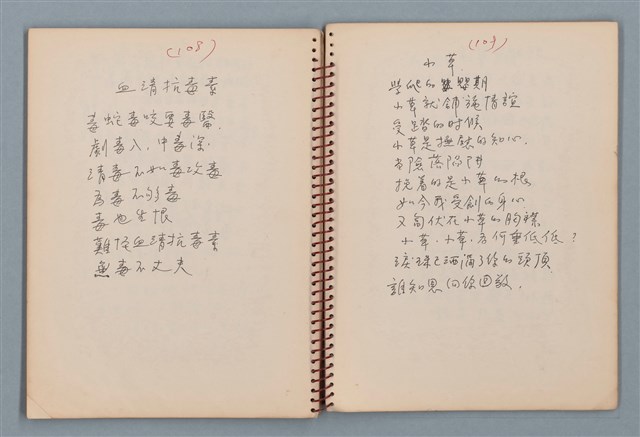 (108)
血清抗毒素
毒蛇毒咬要毒醫
劇毒入、中毒深、
清毒不如毒攻毒
為毒不夠毒
毒也生恨
難怪血清抗毒素
無毒不丈夫
(109)
小草
學爬的嬰期
小草就鋪施情誼
受踏的时候
小草是撫慰的知心、
失險落陷阱
挽着的是小草的根
如今我受創的身心
又匍伏在小草的胸襟
小草、小草、为何垂低低？
淚珠已洒滿了你的頭頂
誰知恩向你回敬、